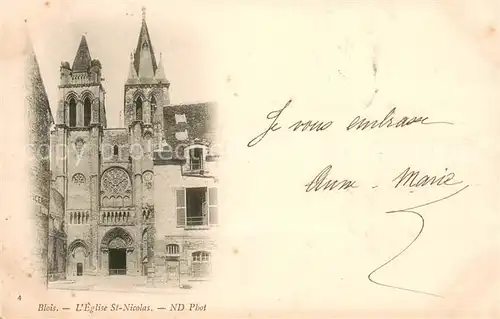 Je vous embrasse
Anne-Marie
4
Blois. — L'Église St-Nicolas. — ND Phot